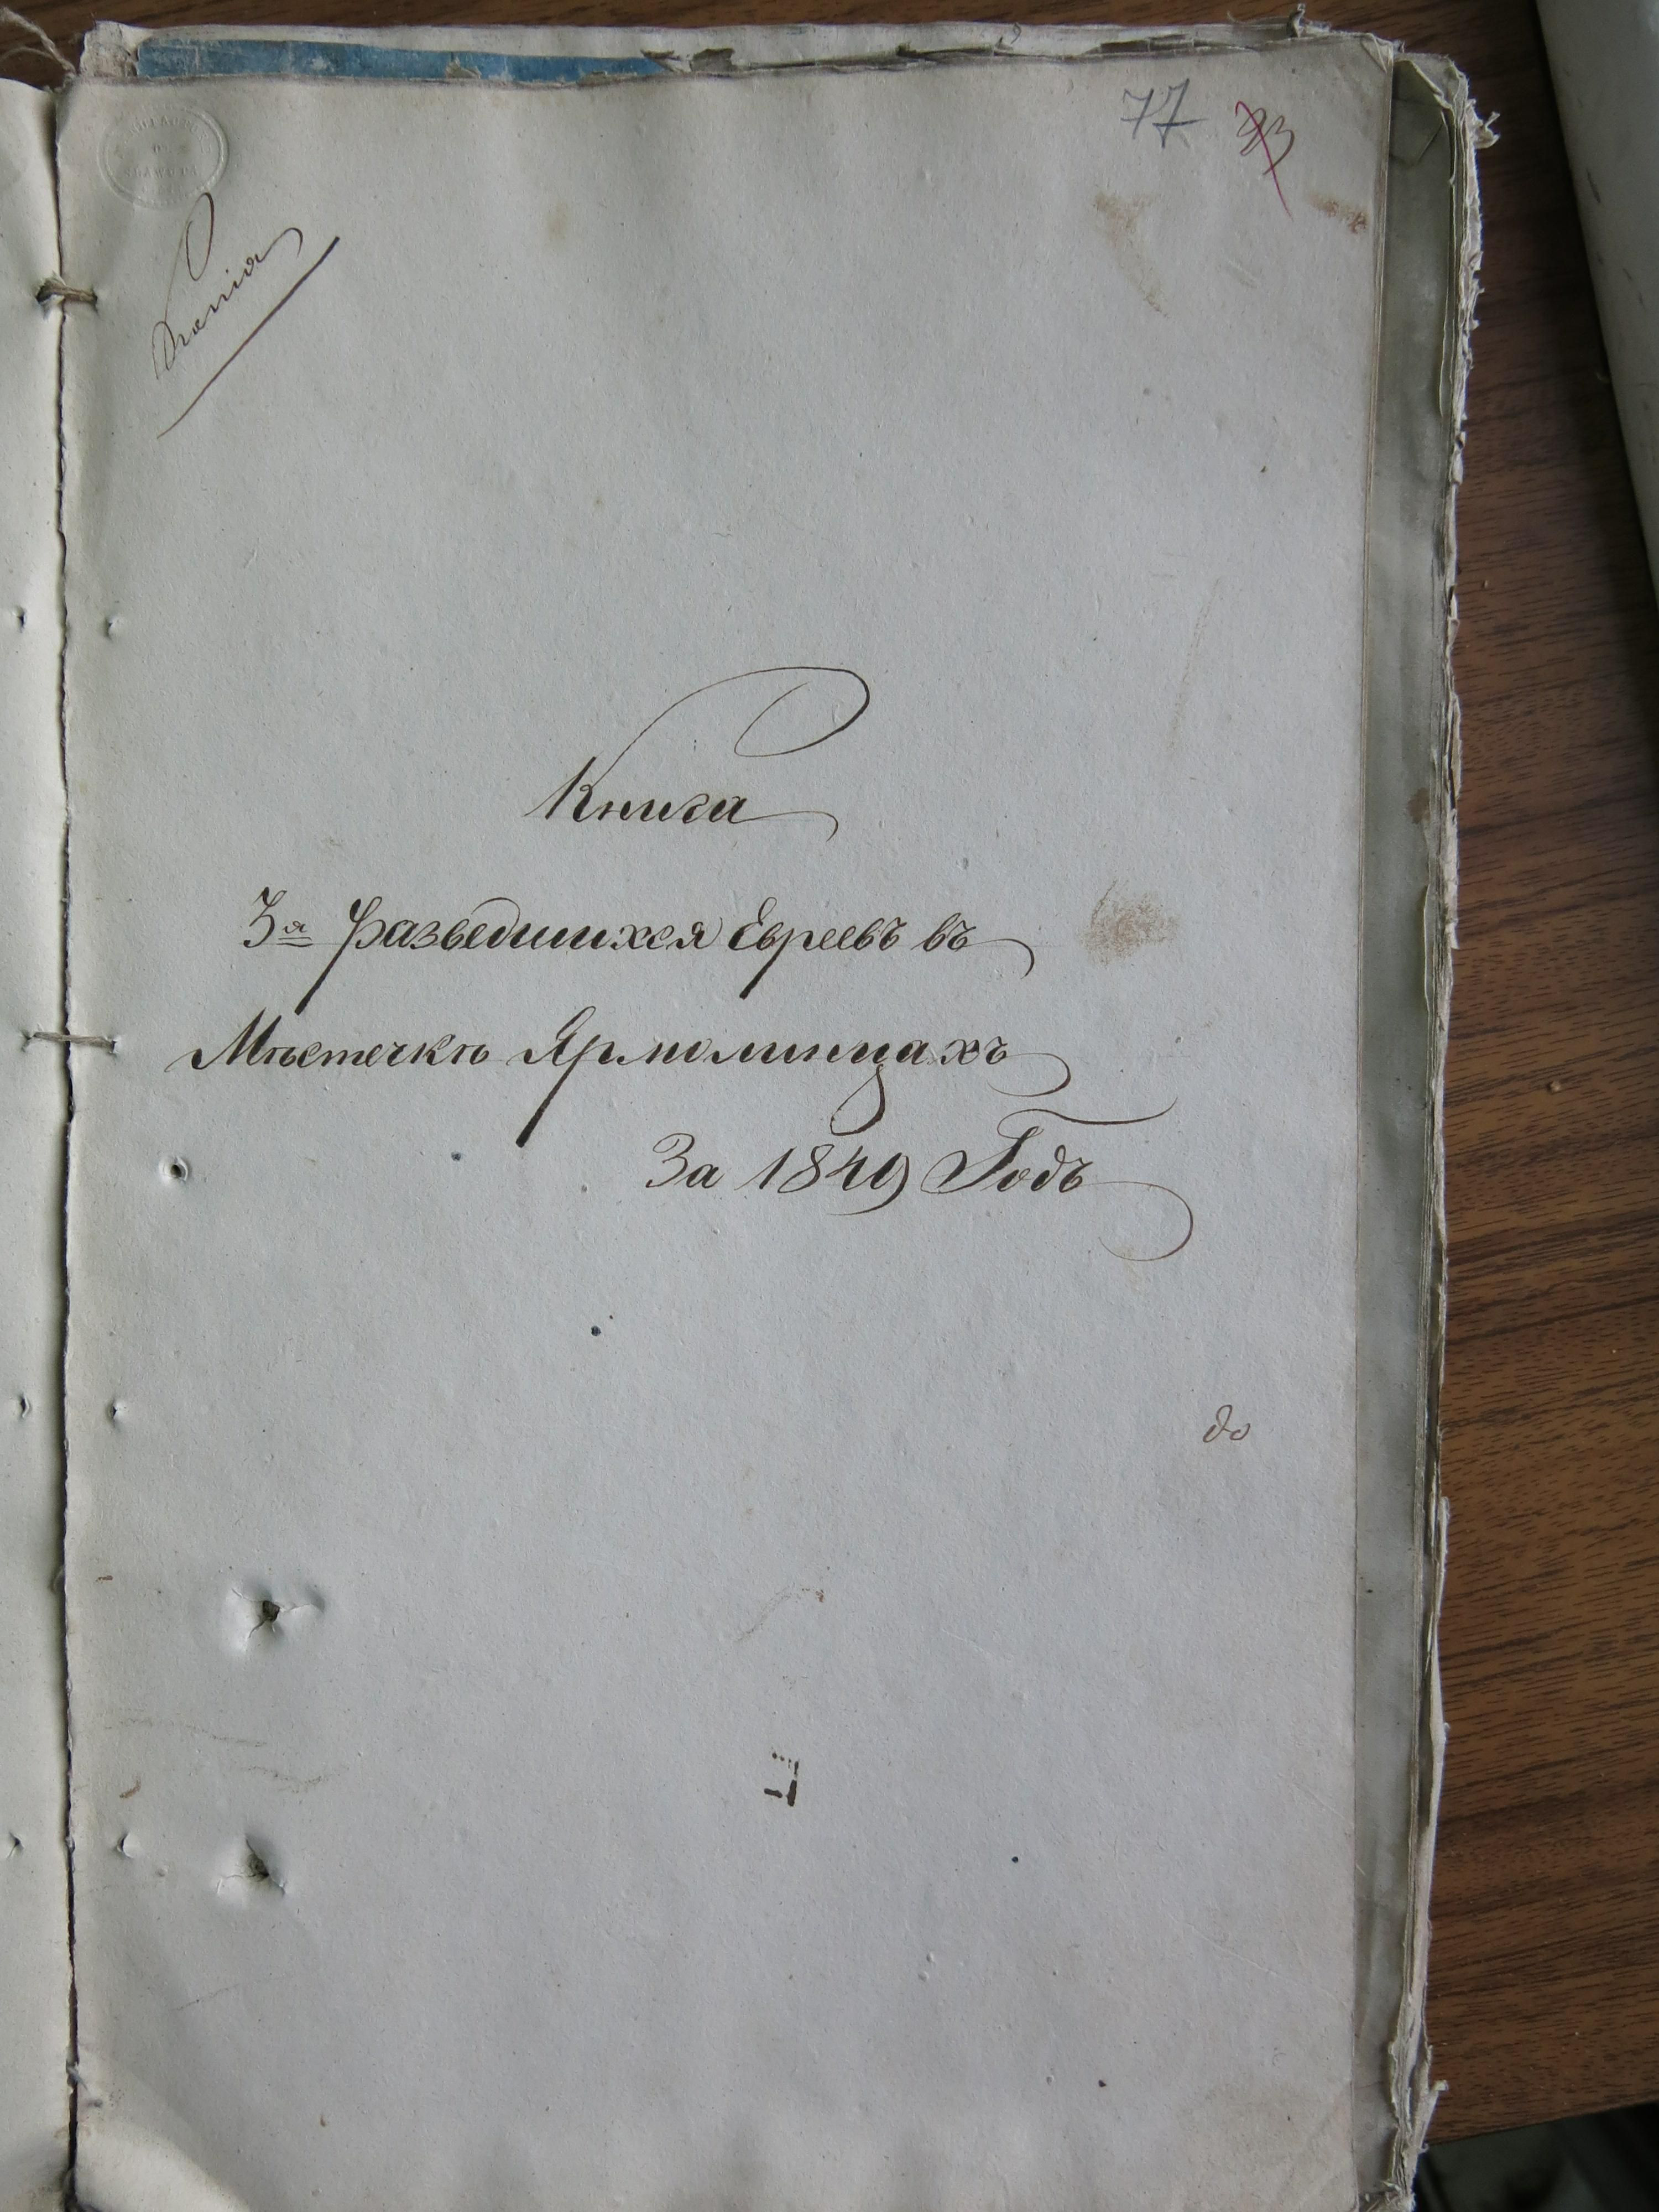 77 33
Копія
Книга
3я Разведшихся Евреевъ въ
Мѣстечкѣ Ярмолинцахъ
За 1849 Годъ
до